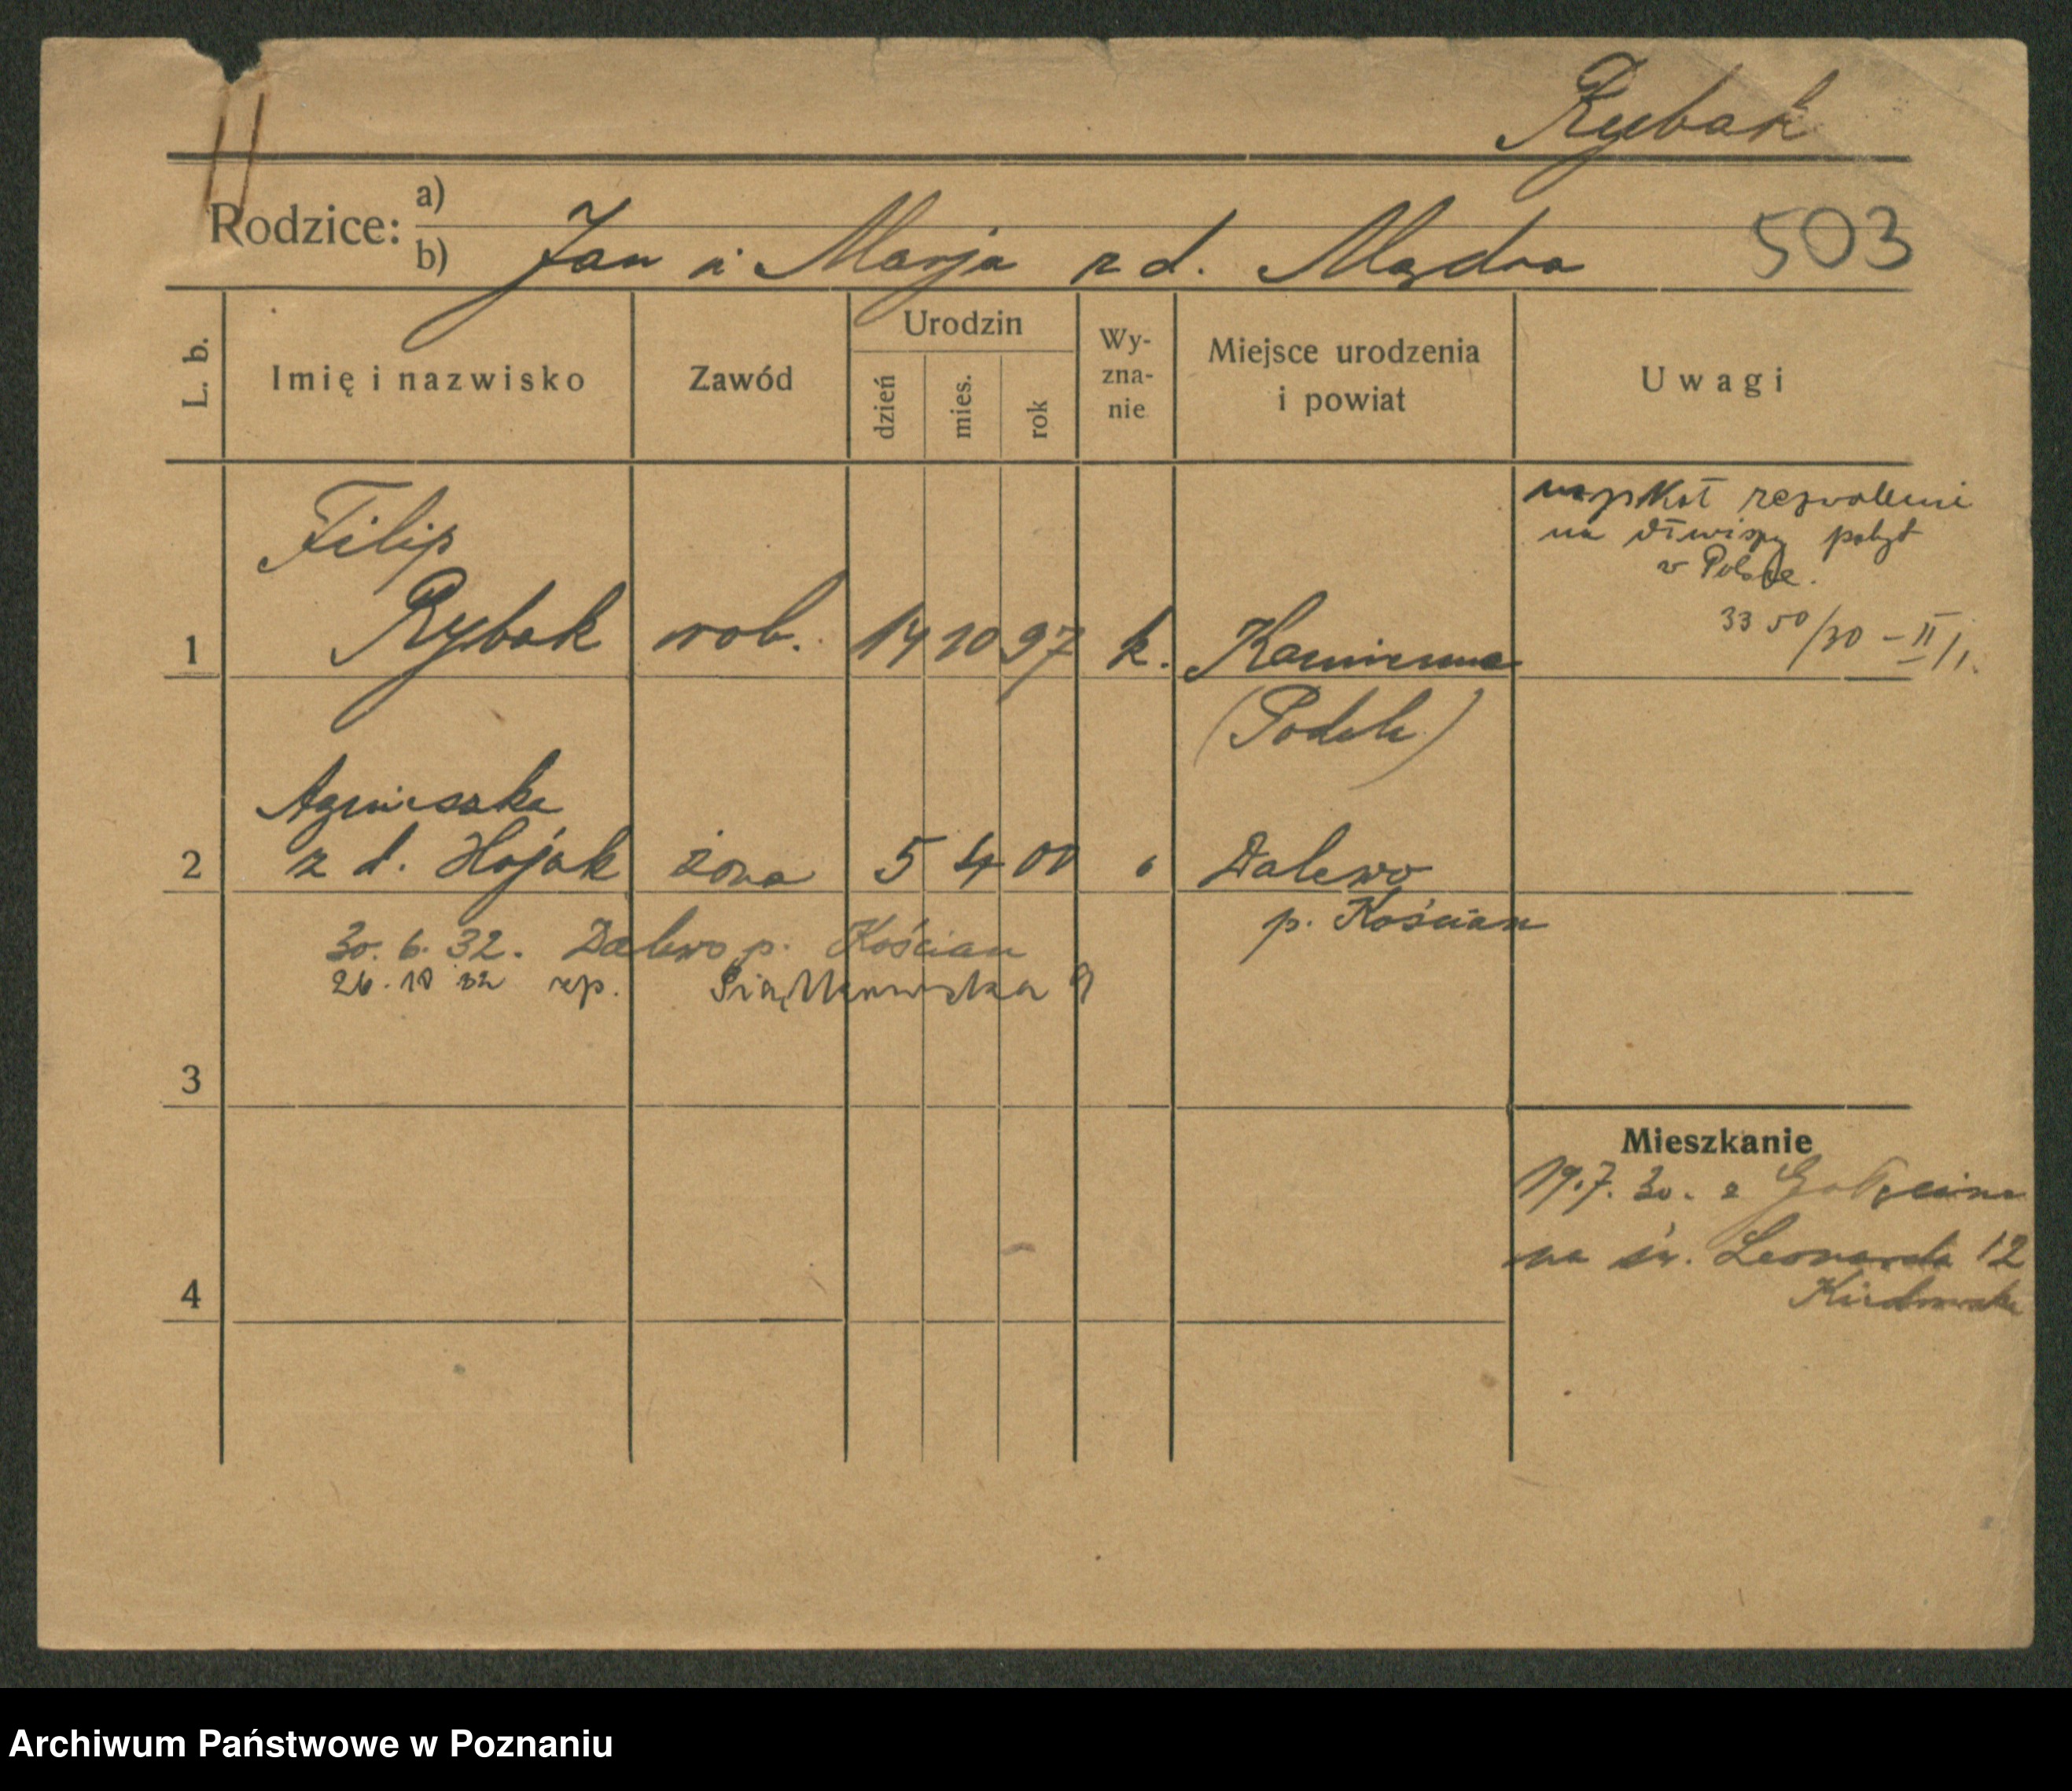 Rybak
Rodzice: a)
b) Jan i Marja z d. Mądra
503
L. b.
Imię i nazwisko
Zawód
Urodzin
dzień
mies.
rok
Wy-
zna-
nie
Miejsce urodzenia
i powiat
Uwagi
Filip
1 Rybak rob. 14 10 97 k. Kamienna
(Podole)
na pobyt
w Polsce.
3350/30 - II/1.
Agnieszka
2 z d. Hojak żona 5 4 00 Dalewo
p. Kościan
30. 6. 32. Dalewo p. Kościan
26. 10 32 Piątkowska 9
3
Mieszkanie
19.7. 30. z Golęcina
na św. Leonarda 12
4
Archiwum Państwowe w Poznaniu